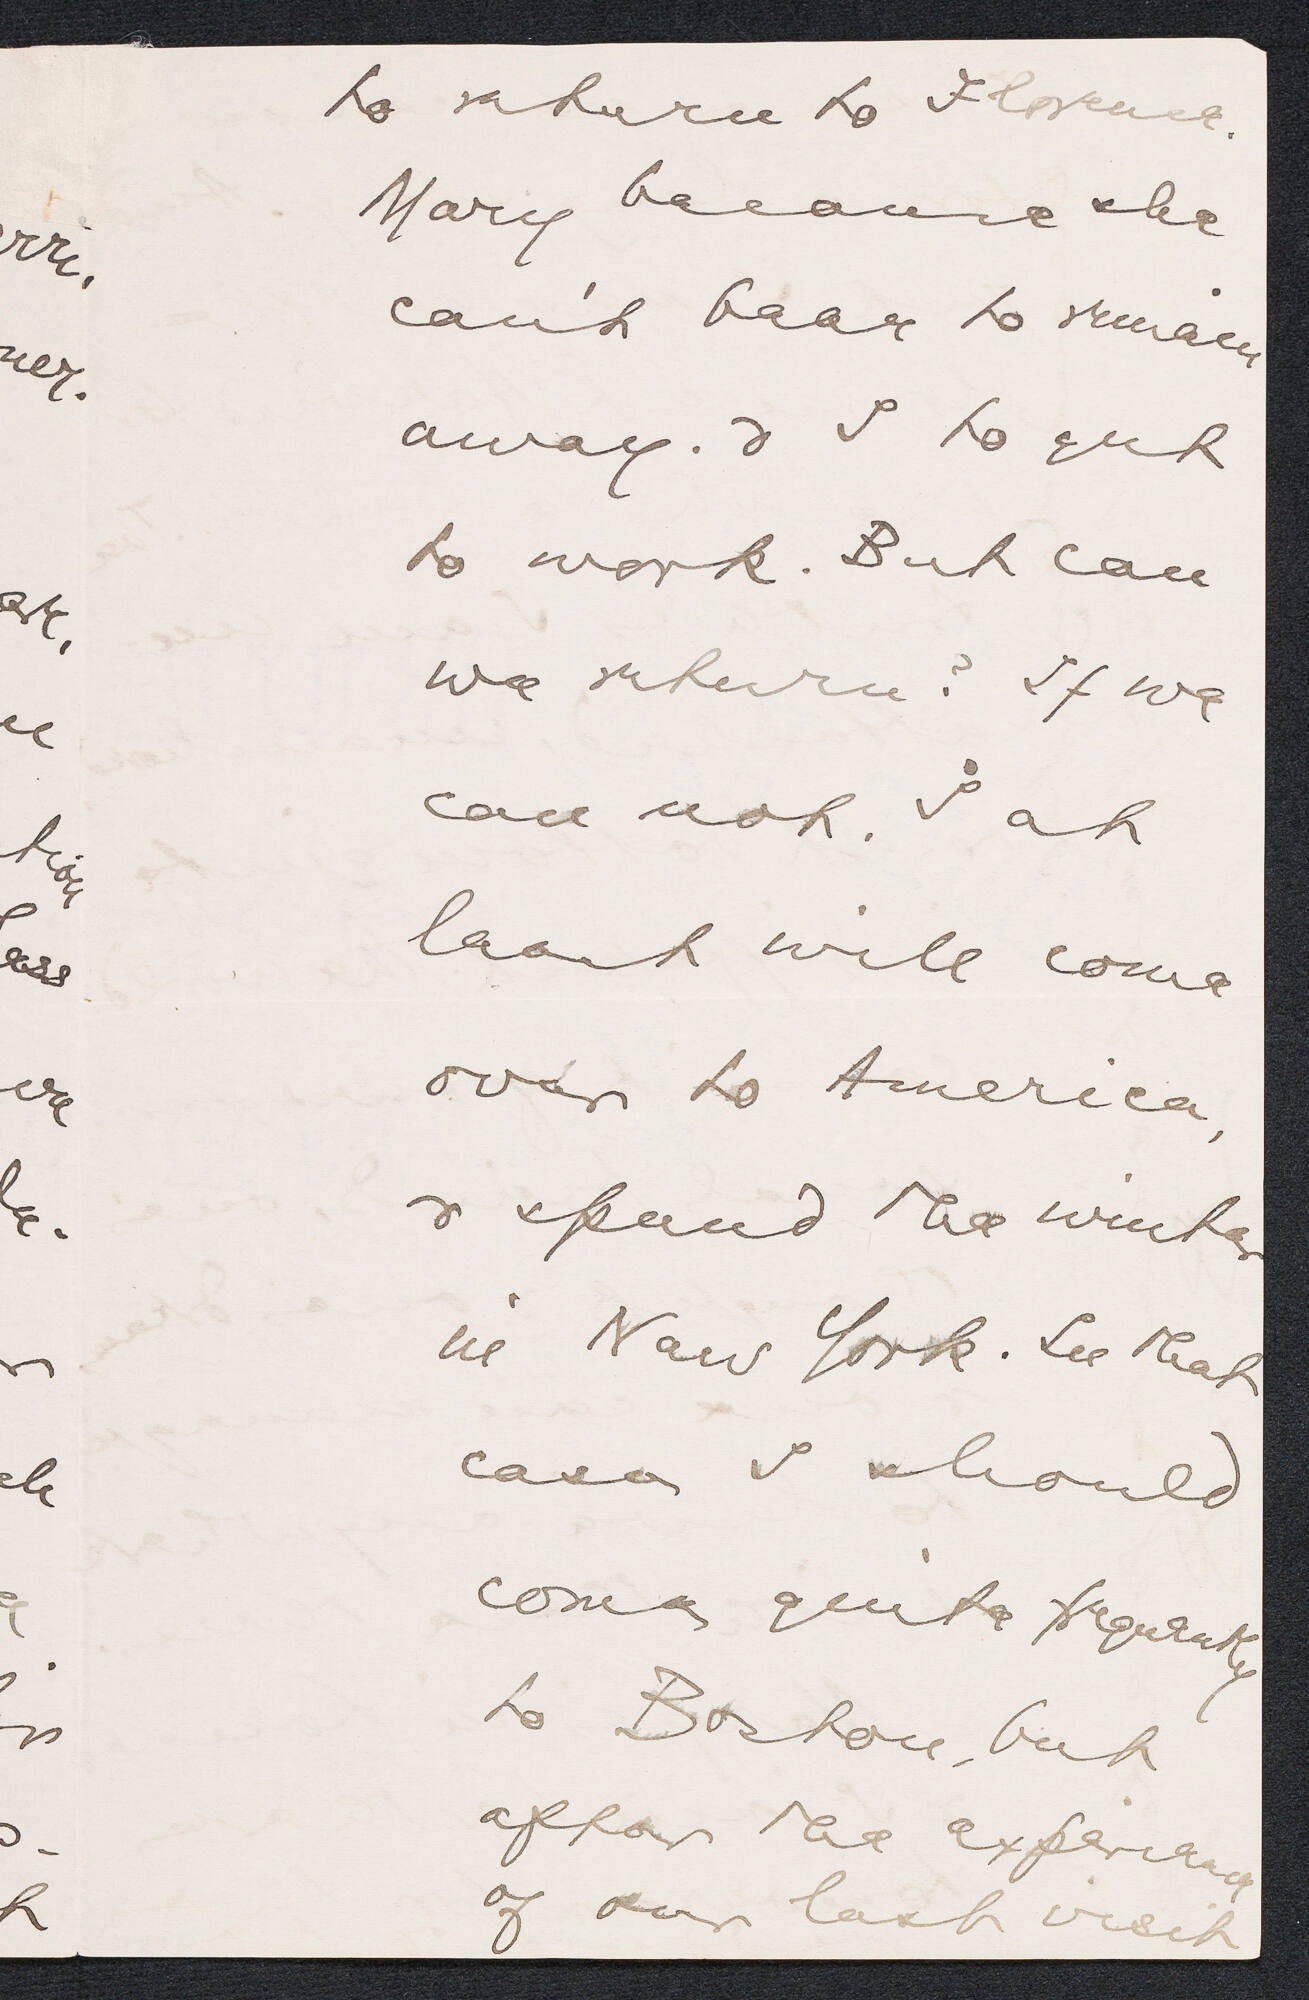 to return to Florence.
Mary because she
can't bear to remain
away. & I to get
to work. But can
we return? If we
can not, I at
least will come
over to America,
& spend the winter
in New York. In that
case I should
come quite frequently
to Boston, but
after the experience
of our last visit